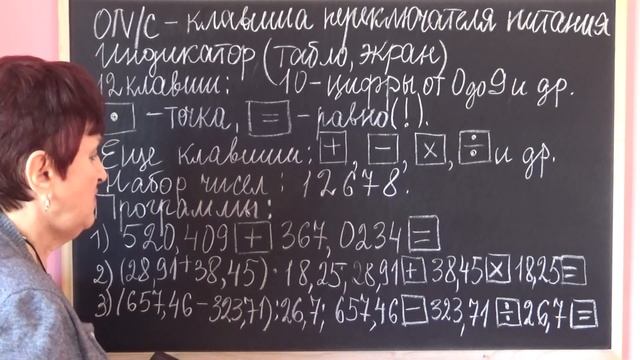 ON/C – клавиша переключателя питания
Индикатор (табло, экран)
12 клавиш: 10 – цифры, от 0 до 9 и др.
• – точка, = – равно(!).
Еще клавиши: +, –, ×, ÷ и др.
Набор чисел: 12678.
Программы:
1) 520,409 + 367,0234 =
2) (28,91+38,45)·18,25; 28,91 + 38,45 × 18,25 =
3) (657,46–323,71):26,7; 657,46 – 323,71 ÷ 26,7 =